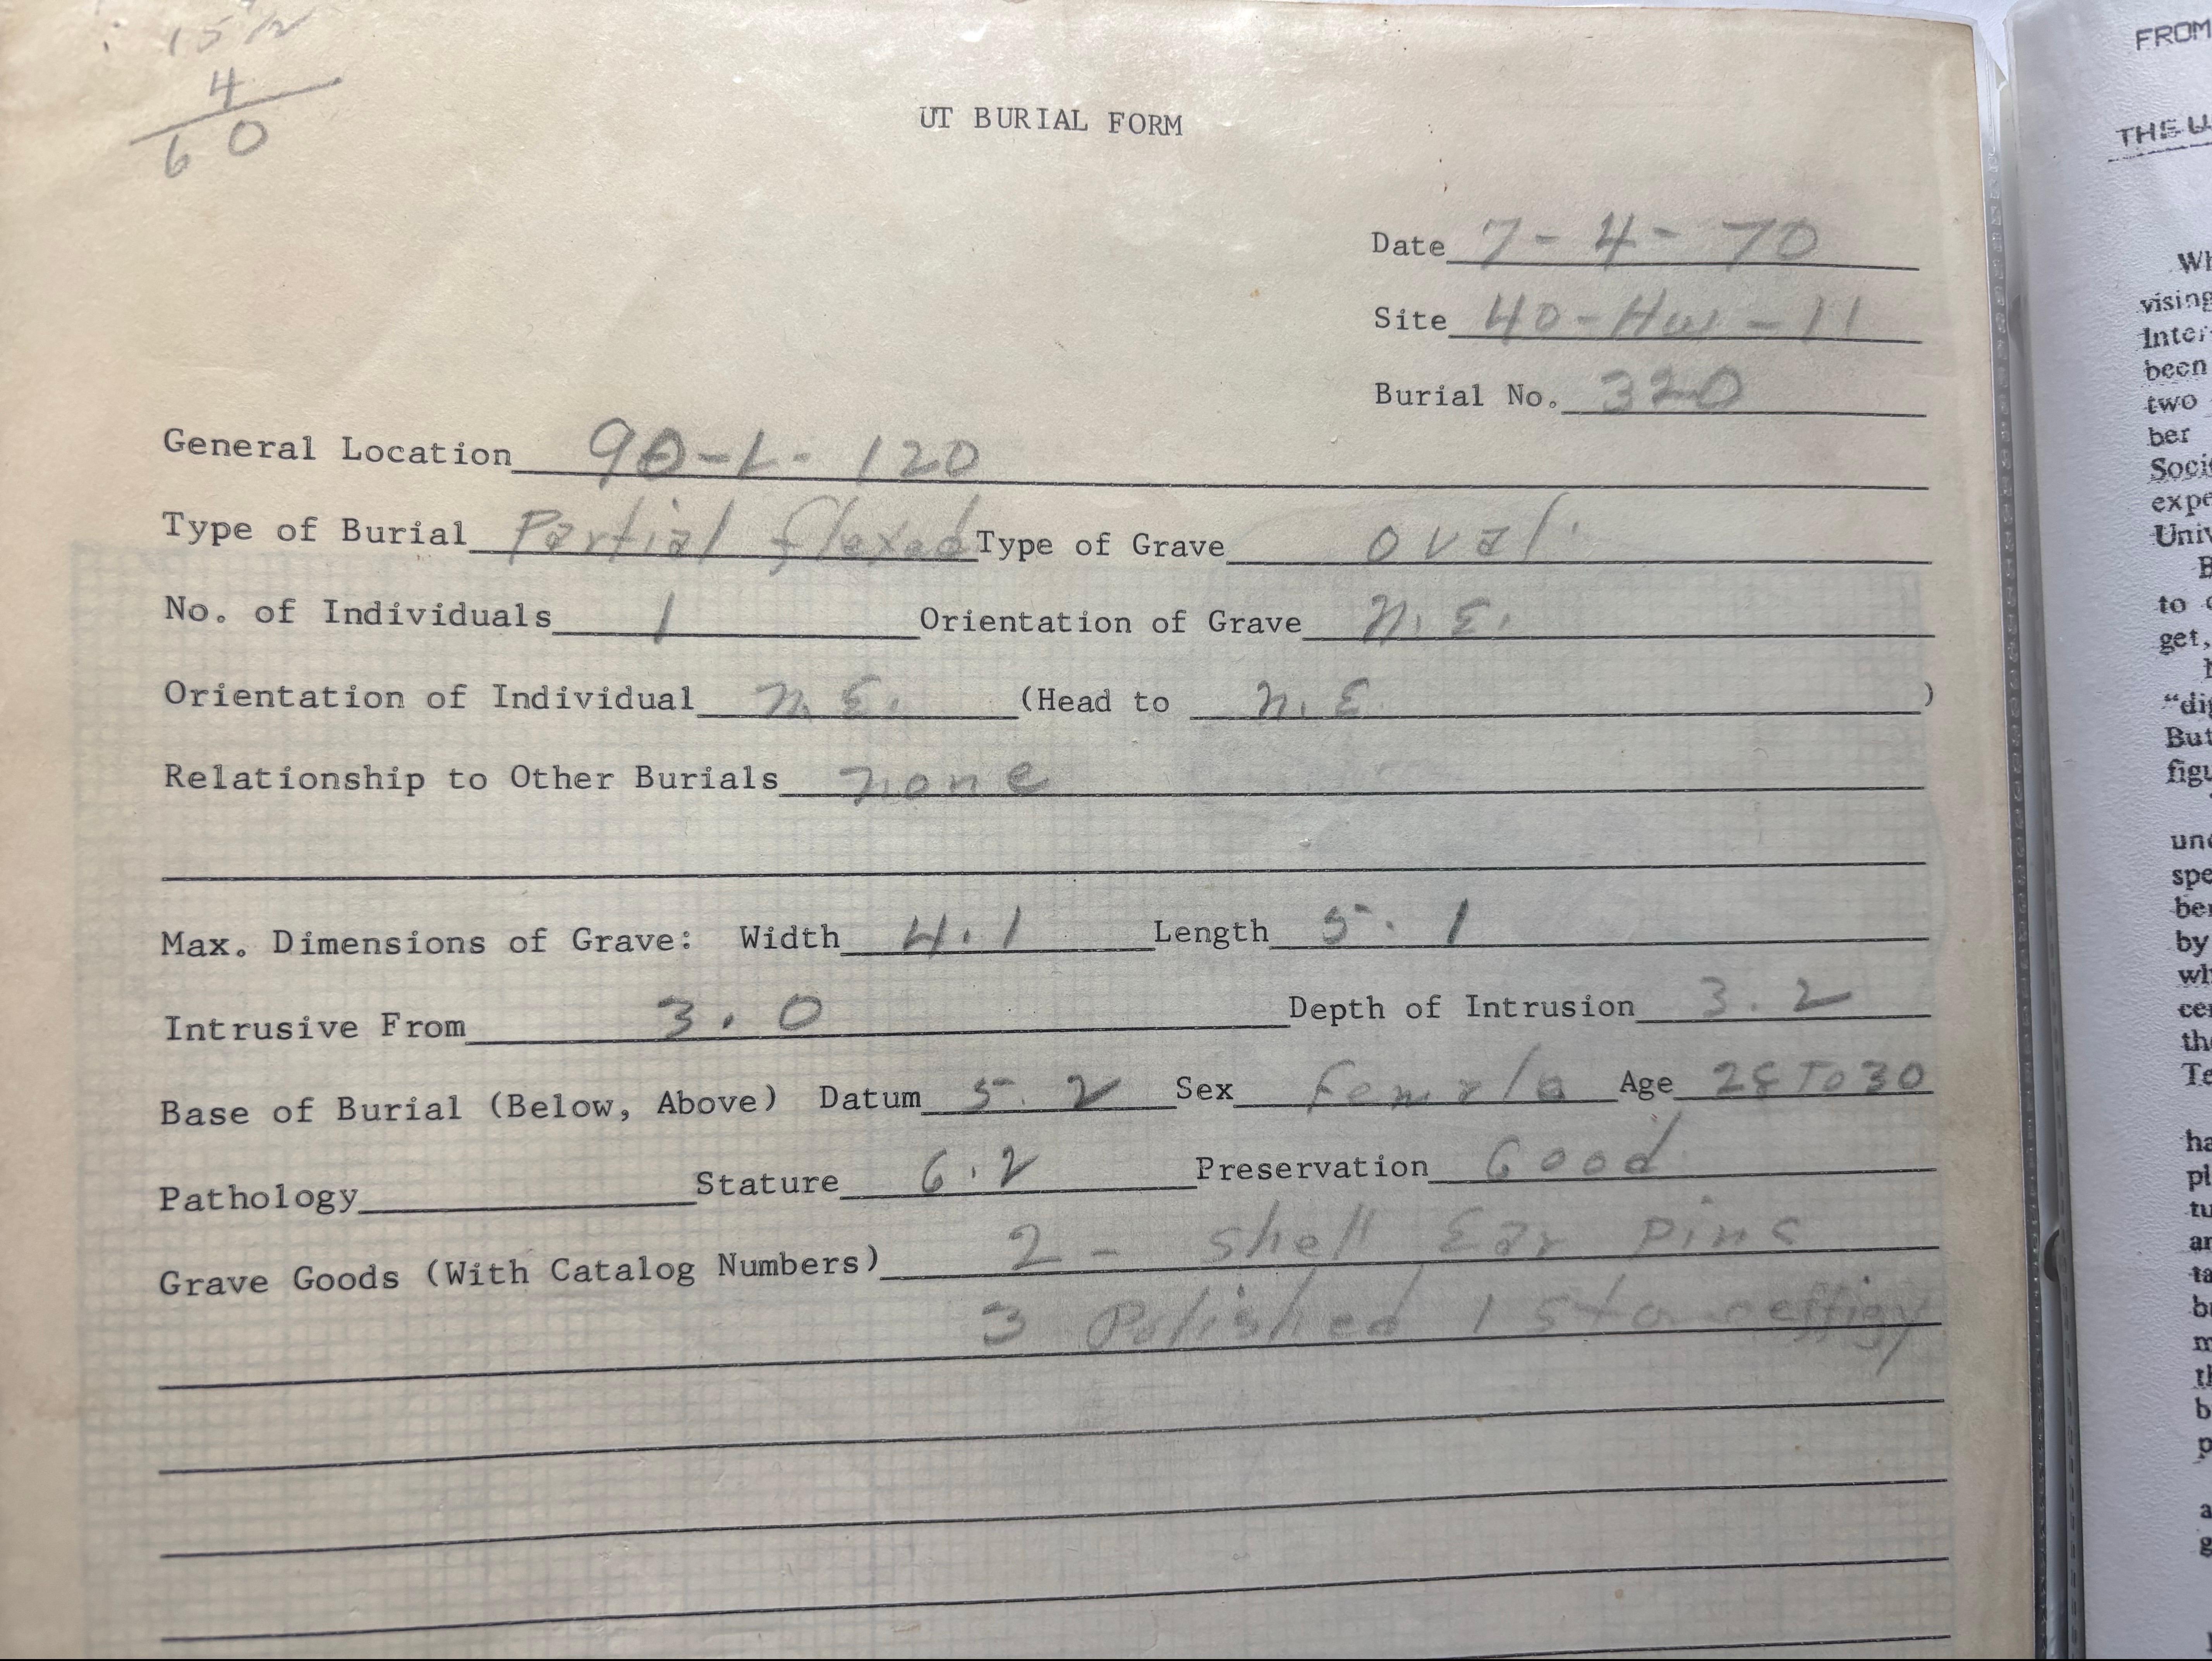 15 1/2
4
60
UT BURIAL FORM
Date 7-4-70
Site 40-Hw-11
Burial No. 320
General Location 90-L-120
Type of Burial Partial flexed Type of Grave oval
No. of Individuals 1 Orientation of Grave N.E.
Orientation of Individual N.E. (Head to N.E. )
Relationship to Other Burials none
Max. Dimensions of Grave: Width 4.1 Length 5.1
Intrusive From 3.0 Depth of Intrusion 3.2
Base of Burial (Below, Above) Datum 5.2 Sex Female Age 28 To 30
Pathology Stature 6.2 Preservation Good
Grave Goods (With Catalog Numbers) 2 - Shell Ear pins
3 Polished 1 effigy
FROM
THE
vising
been
two
ber
to
get,
by